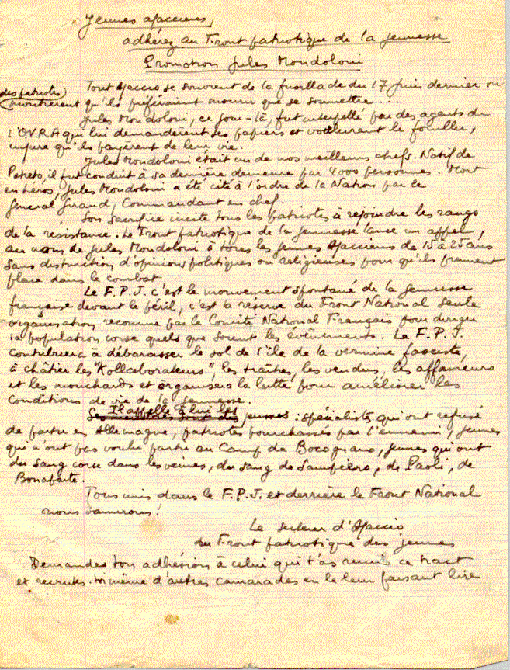 Jeunes ajacciens,
adhérez au Front patriotique de la jeunesse
Promotion Jules Mondoloni
Tout Ajaccio se souvient de la fusillade du 17 Juin dernier où
des patriotes montrèrent qu'ils préféraient mourir que se soumettre...
Jules Mondoloni, ce jour-là, fut interpellé par des agents de
l'OVRA qui lui demandèrent ses papiers et voulurent le fouiller,
injure qu'ils payèrent de leur vie.
Jules Mondoloni était un de nos meilleurs chefs. Natif de
Petreto, il fut conduit à sa dernière demeure par 4000 personnes. Mort
en héros, Jules Mondoloni a été cité à l'ordre de la Nation par le
Général Giraud, Commandant en chef.
Son sacrifice incite tous les patriotes à rejoindre les rangs
de la résistance. Le Front patriotique de la jeunesse lance un appel,
au nom de Jules Mondoloni à tous les jeunes Ajacciens de 15 à 25 ans
sans distinction d'opinions politiques ou religieuses pour qu'ils prennent
place dans le combat.
Le F.P.J. c'est le mouvement spontané de la jeunesse
française devant le péril, c'est la réserve du Front National seule
organisation reconnue par le Comité National Français pour diriger
la population corse quels que soient les événements. Le F.P.J.
contribuera à débarasser le sol de l'île de la vermine fasciste,
à châtier les "Kollaborateurs", les traîtres, les vendus, les affameurs
et les mouchards et organisera la lutte pour améliorer les
conditions de vie de la jeunesse.
Il appelle à lui les jeunes: spécialistes qui ont refusé
de partir en Allemagne, patriotes pourchassés par l'ennemi, jeunes
qui n'ont pas voulu partir au Camp de Bocognano, jeunes qui ont
du sang corse dans les veines, du sang de Sampiero, de Paoli, de
Bonaparte.
Tous unis dans le F.P.J. et derrière le Front National
nous vaincrons!
Le secteur d'Ajaccio
du Front patriotique des jeunes
Demandes ton adhésion à celui qui t'as remis ce tract
et recrutes toi-même d'autres camarades en le leur faisant lire